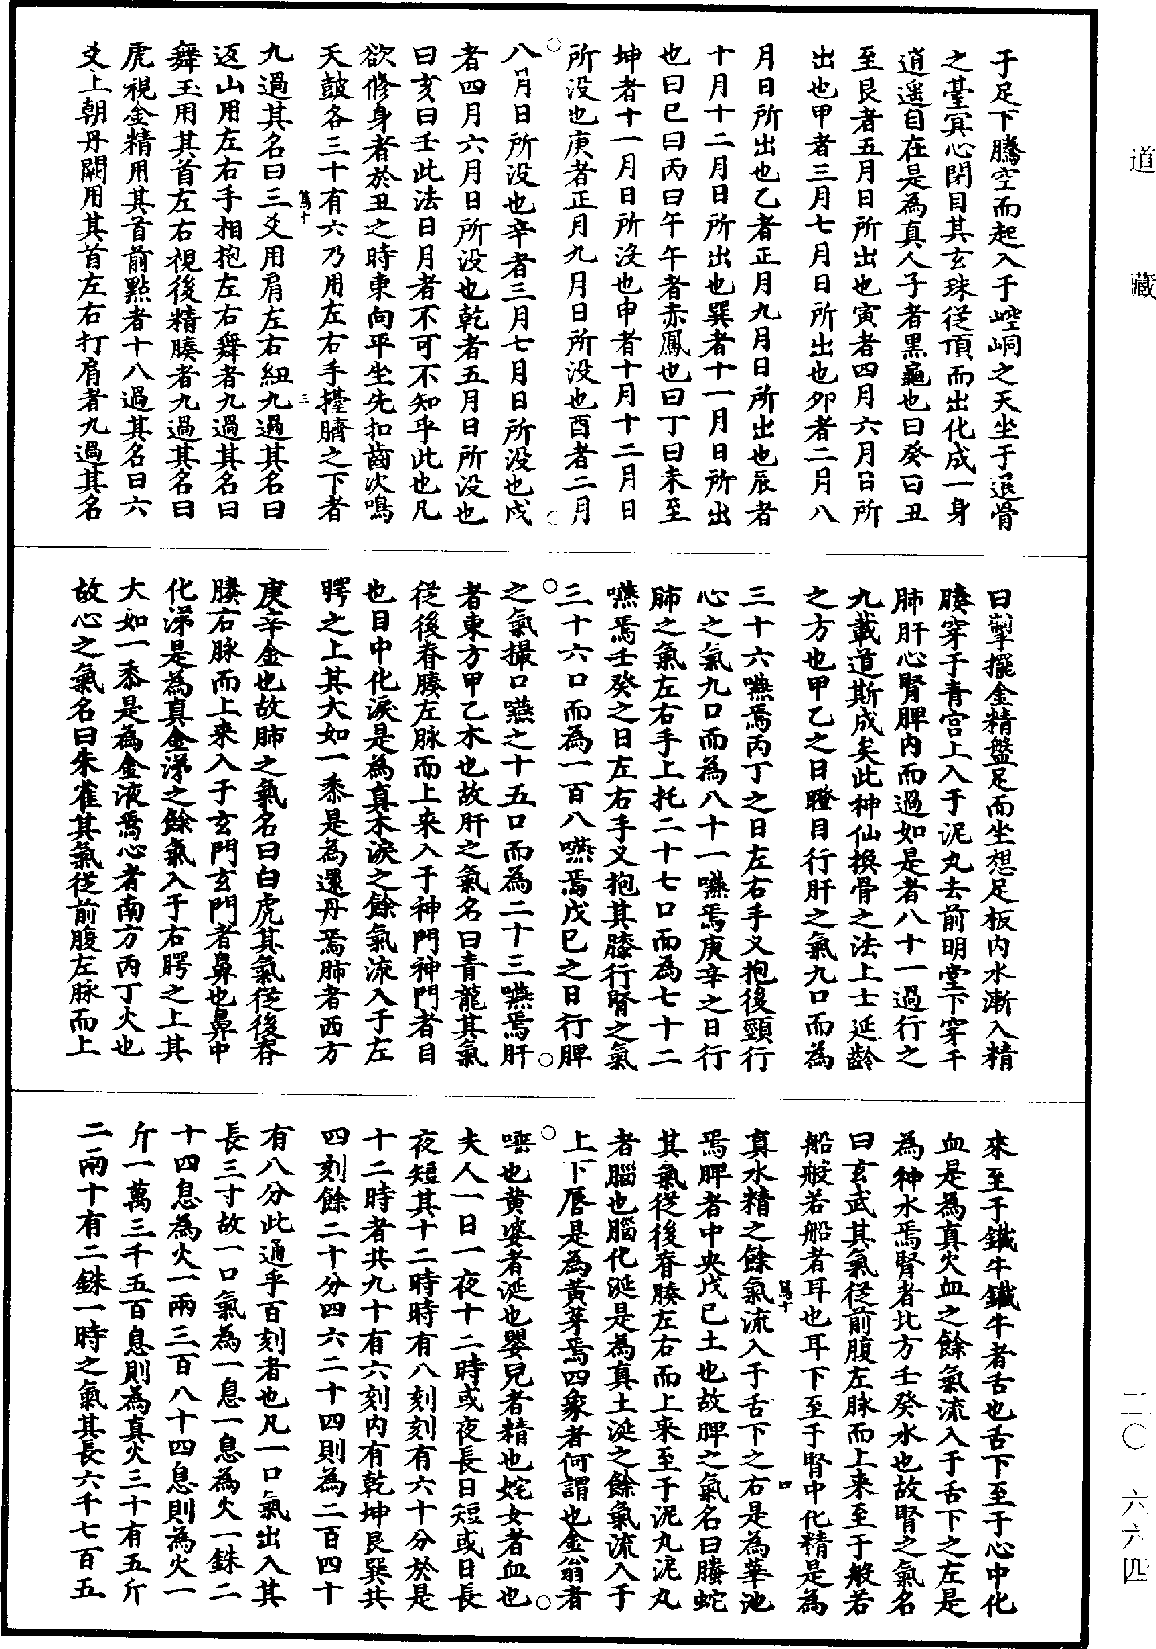 道藏
于足下騰空而起入于崆峒之天坐于退骨
之臺冥心閉目其玄珠從頂而出化成一身
逍遥自在是為真人子者黑龜也曰癸曰丑
至艮者五月日所出也寅者四月六月日所
出也甲者三月七月日所出也卯者二月八
月日所出也乙者正月九月日所出也辰者
十月十二月日所出也巽者十一月日所出
也曰巳曰丙曰午午者赤鳳也曰丁曰未至
坤者十一月日所没也申者十月十二月日
所没也庚者正月九月日所没也酉者二月
八月日所没也辛者三月七月日所没也戌
者四月六月日所没也乾者五月日所没也
曰亥曰壬此法日月者不可不知乎此也凡
欲修身者於丑之時東向平坐先扣齒次鳴
天鼓各三十有六乃用左右手擡臍之下者
篇十 三
九過其名曰三爻用肩左右紐九過其名曰
返山用左右手相抱左右舞者九過其名曰
舞玉用其首左右視後精腠者九過其名曰
虎視金精用其首前點者十八過其名曰六
爻上朝丹闕用其首左右打肩者九過其名
曰掣擺金精盤足而坐想足板内水漸入精
腠穿于青宫上入于泥丸去前明堂下穿于
肺肝心腎脾内而過如是者八十一過行之
九載道斯成矣此神仙換骨之法上士延齡
之方也甲乙之日瞪目行肝之氣九口而為
三十六嚥焉丙丁之日左右手叉抱後頸行
心之氣九口而為八十一嚥焉庚辛之日行
肺之氣左右手上托二十七口而為七十二
嚥焉壬癸之日左右手叉抱其膝行腎之氣
三十六口而為一百八嚥焉戊巳之日行脾
之氣撮口嚥之十五口而為二十三嚥焉肝
者東方甲乙木也故肝之氣名曰青龍其氣
從後脊腠左脉而上來入于神門神門者目
也目中化淚是為真木淚之餘氣流入于左
腭之上其大如一黍是為還丹焉肺者西方
庚辛金也故肺之氣名曰白虎其氣從後脊
腠右脉而上來入于玄門玄門者鼻也鼻中
化涕是為真金涕之餘氣入于右腭之上其
大如一黍是為金液焉心者南方丙丁火也
故心之氣名曰朱雀其氣從前腹左脉而上
來至于鐵牛鐵牛者舌也舌下至于心中化
血是為真火血之餘氣流入于舌下之左是
為神水焉腎者北方壬癸水也故腎之氣名
曰玄武其氣從前腹左脉而上來至于般若
船般若船者耳也耳下至于腎中化精是為
篇十 四
真水精之餘氣流入于舌下之右是為華池
焉脾者中央戊巳土也故脾之氣名曰螣蛇
其氣從後脊腠左右而上來至于泥丸泥丸
者腦也腦化涎是為真土涎之餘氣流入于
上下脣是為黃芽焉四象者何謂也金翁者
唾也黄婆者涎也嬰兒者精也姹女者血也
夫人一日一夜十二時或夜長日短或日長
夜短其十二時時有八刻刻有六十分於是
十二時者共九十有六刻内有乾坤艮巽共
四刻餘二十分四六二十四則為二百四十
有八分此通乎百刻者也凡一口氣出入其
長三寸故一口氣為一息一息為火一銖二
十四息為火一兩三百八十四息則為火一
斤一萬三千五百息則為真火三十有五斤
二兩十有二銖一時之氣其長六千七百五
二〇 六六四